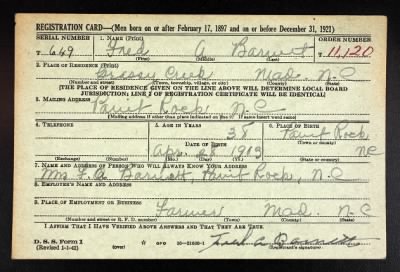 REGISTRATION CARD—(Men born on or after February 17, 1897 and on or before December 31, 1921)
SERIAL NUMBER 1. NAME (Print) ORDER NUMBER
T 649 Fred A Barnett T 11,120
(First) (Middle) (Last)
2. PLACE OF RESIDENCE (Print)
Grassy Creek Mad. N-C
(Number and street) (Town, township, village, or city) (County) (State)
[THE PLACE OF RESIDENCE GIVEN ON THE LINE ABOVE WILL DETERMINE LOCAL BOARD
JURISDICTION; LINE 2 OF REGISTRATION CERTIFICATE WILL BE IDENTICAL]
3. MAILING ADDRESS
Paint Rock N-C
[Mailing address if other than place indicated on line 2. If same insert word same]
4. TELEPHONE 5. AGE IN YEARS 6. PLACE OF BIRTH
38 Paint Rock
DATE OF BIRTH (Town or county)
Apr. 1903 NC
(Exchange) (Number) (Mo.) (Day) (Yr.) (State or country)
7. NAME AND ADDRESS OF PERSON WHO WILL ALWAYS KNOW YOUR ADDRESS
Mrs F. A. Barnett, Paint Rock, N.C
8. EMPLOYER'S NAME AND ADDRESS
9. PLACE OF EMPLOYMENT OR BUSINESS
Farmer Mad. N-C
(Number and street or R. F. D. number) (Town) (County) (State)
I AFFIRM THAT I HAVE VERIFIED ABOVE ANSWERS AND THAT THEY ARE TRUE.
D. S. S. Form 1
(Revised 1-1-42) GPO 16-21630-1 Fred A Barnett
(Registrant's signature)